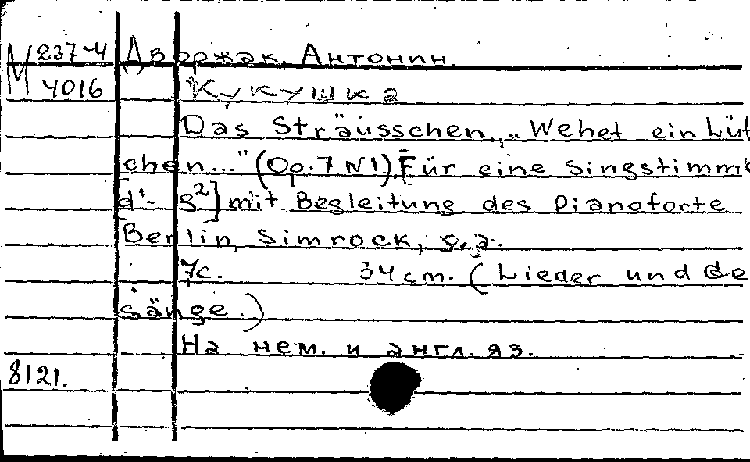 М 237-4 Дворжак, Антонин.
4016 Кукушка
Das Sträusschen. „Wehet ein Lüf
chen..." (Op.7 N1) Für eine Singstimme
d'- g²] mit Begleitung des Pianoforte
Berlin, Simrock, s.a.
7c. 34 cm. (Lieder und Ge
sänge.)
На нем. и англ. яз.
8121.